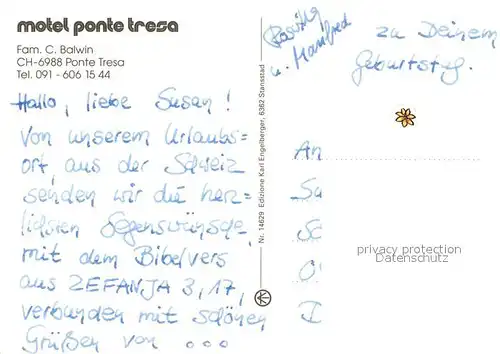 motel ponte tresa
Fam. C. Balwin
CH-6988 Ponte Tresa
Tel. 091 - 606 15 44
Hallo, liebe Susan!
Von unserem Urlaubs=
ort, aus der Schweiz
senden wir die herz=
lichsten Segenswünsche,
mit dem Bibelvers
aus ZEFANJA 3, 17,
verbunden mit schönen
Grüßen von ...
u. Manfred
zu Deinem
Geburtstag.
Nr. 14629 Edizione Karl Engelberger, 6362 Stansstad
An
Su
Sc
privacy protection
Datenschutz
I